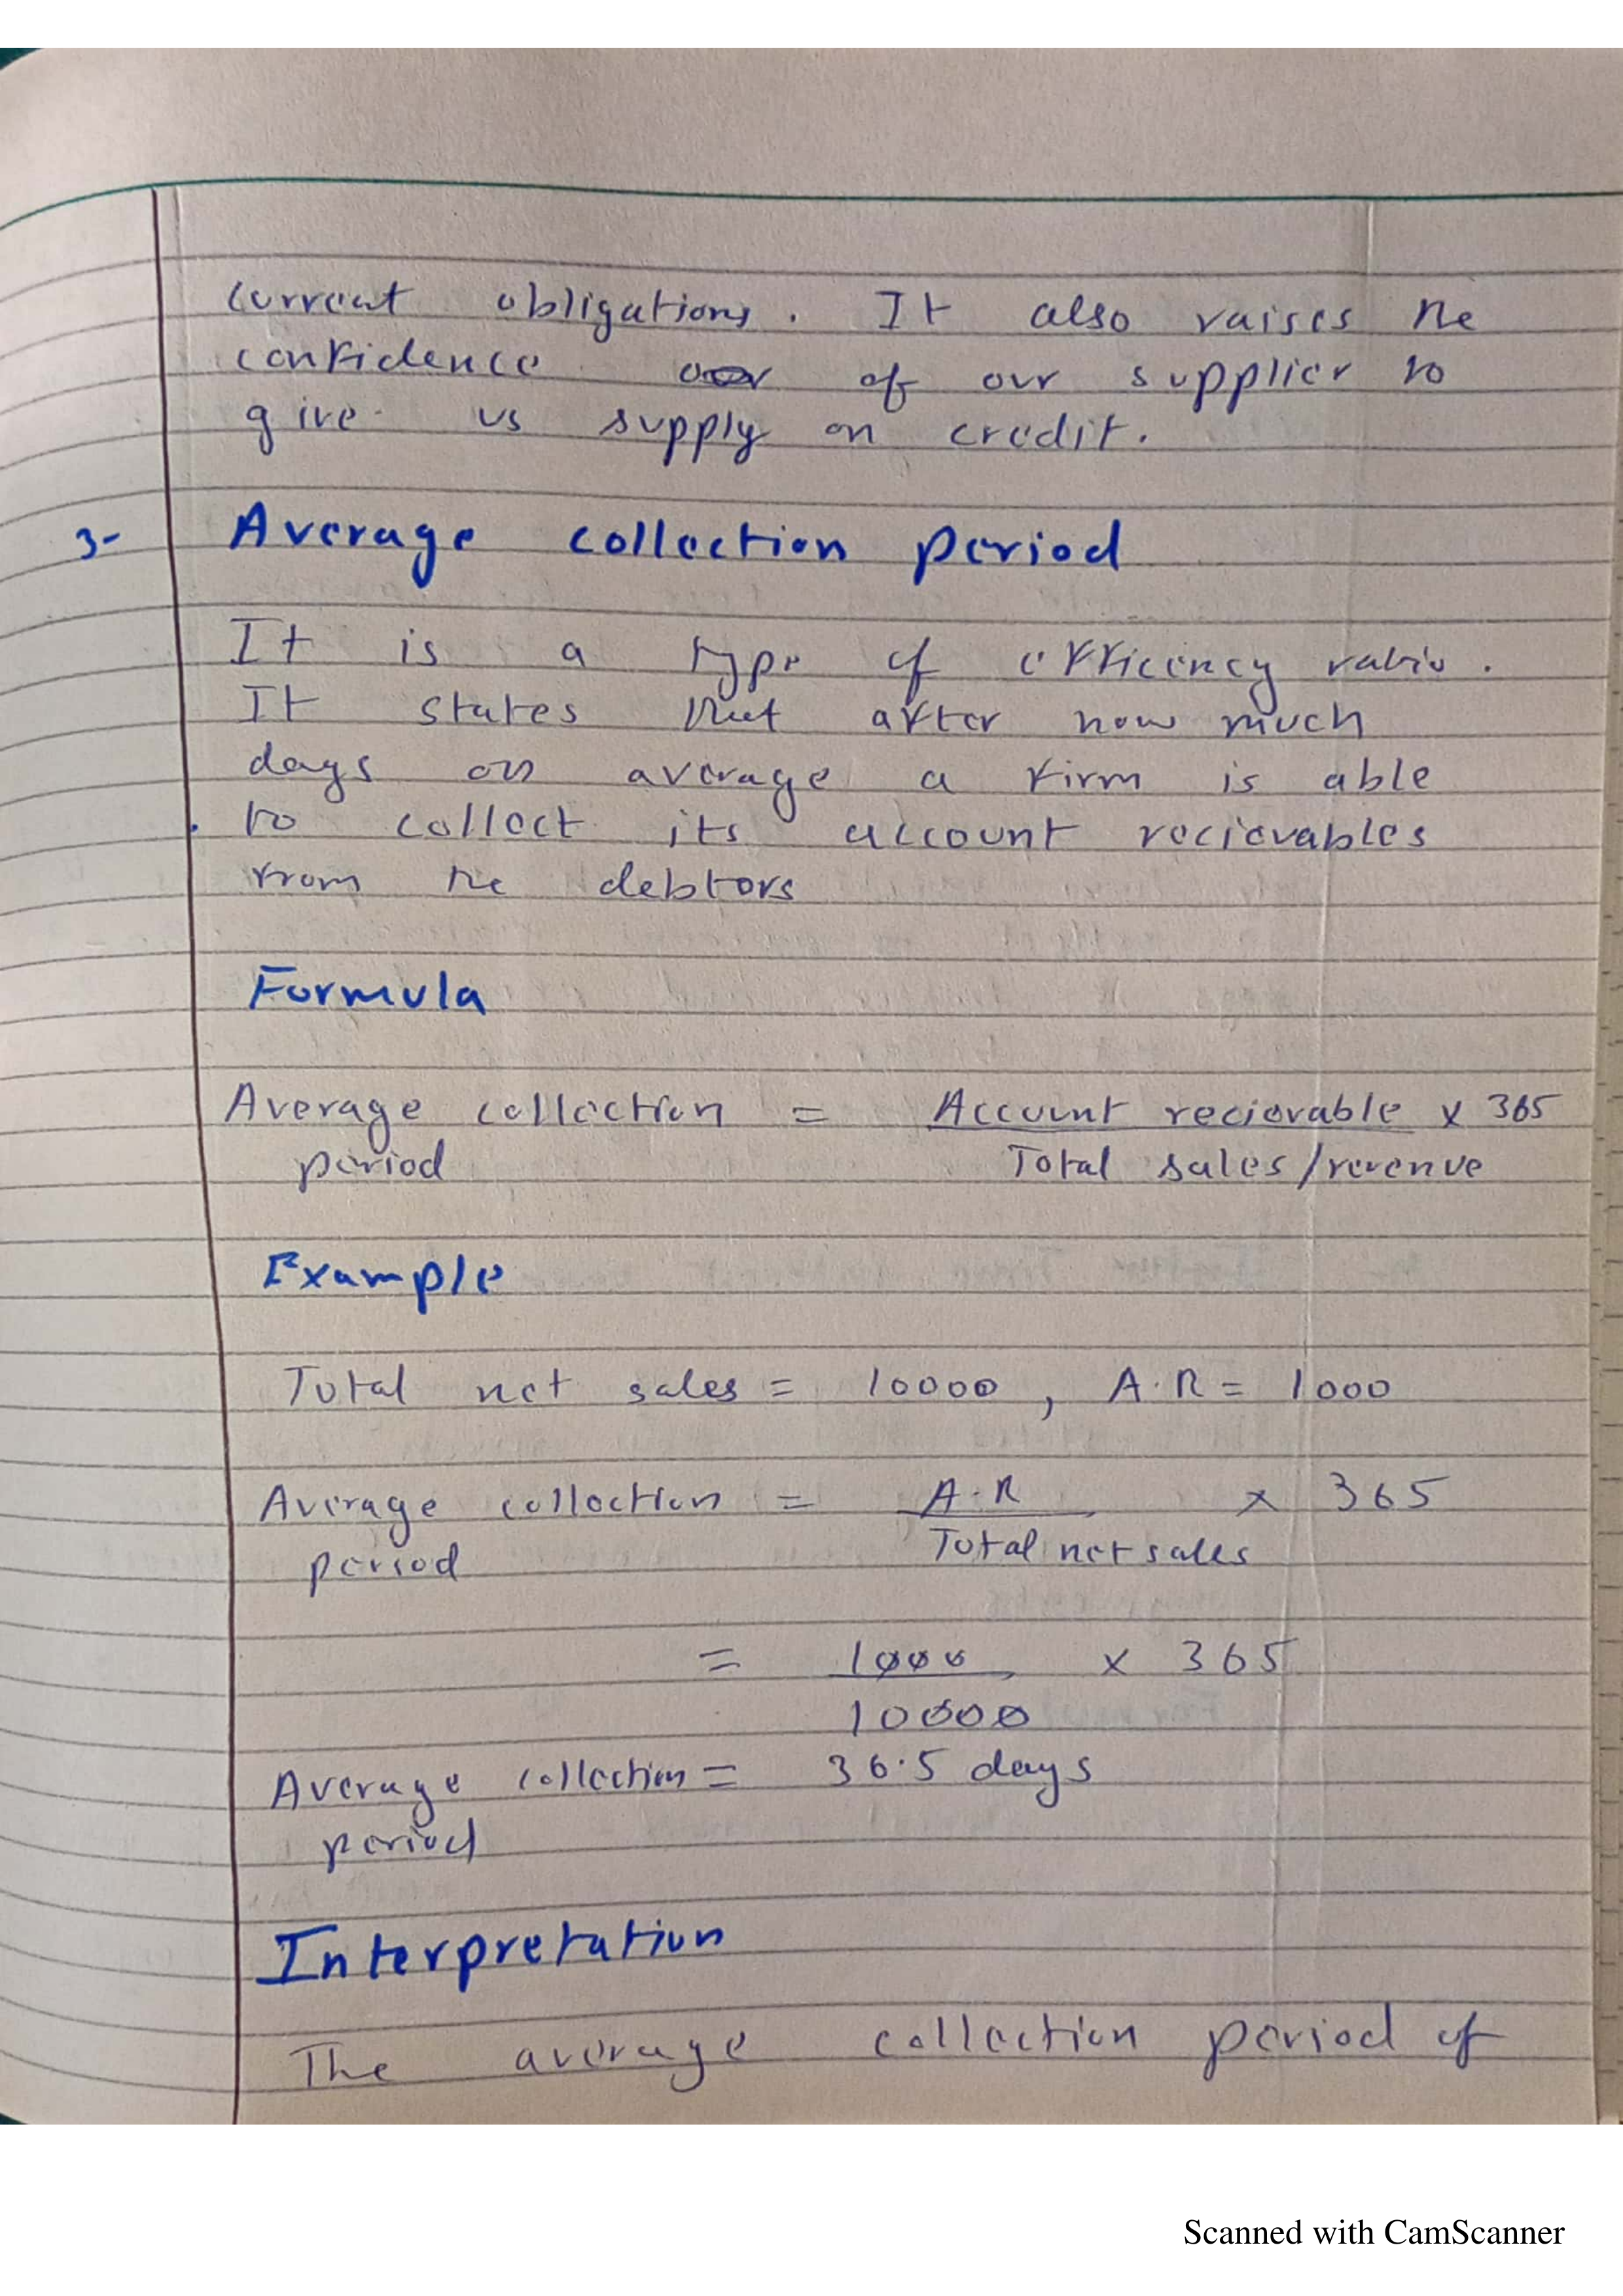 current obligations. It also raises the
confidence of our supplier to
give us supply on credit.
3- Average collection period
It is a type of efficency ratio.
It states that after how much
days on average a firm is able
to collect its account recievables
from the debtors
Formula
Average collection = Account recievable x 365
period Total sales/revenue
Example
Total net sales = 10000, A.R = 1000
Average collection = A.R x 365
period Total net sales
= 1000 x 365
10000
Average collection = 36.5 days
period
Interpretation
The average collection period of
Scanned with CamScanner